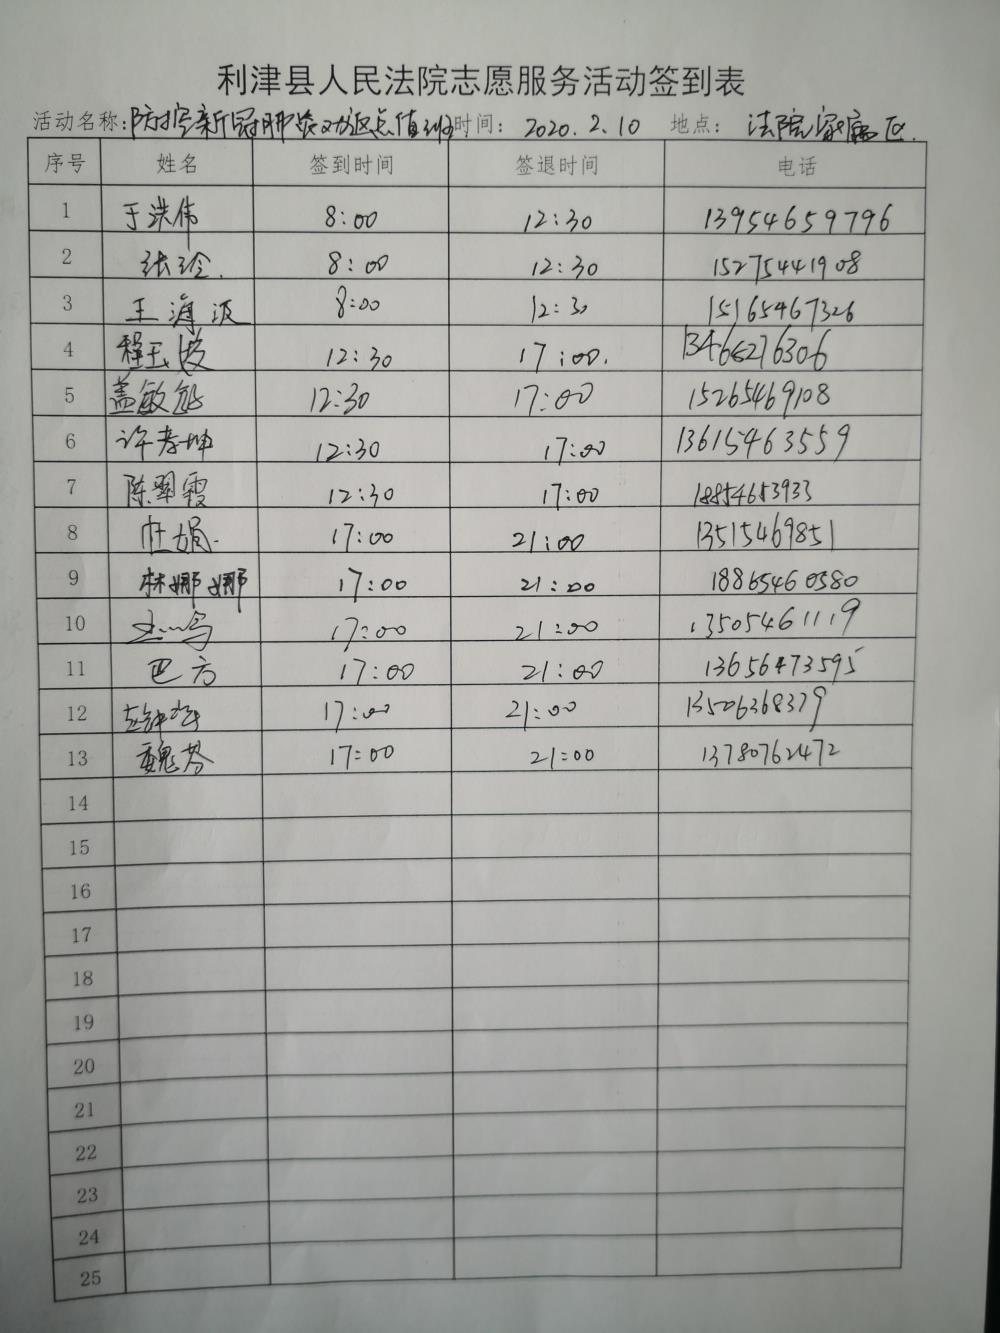 利津县人民法院志愿服务活动签到表
活动名称:防控新冠肺炎双报返点值班 时间: 2020.2.10 地点: 法院家属区.
序号 姓名 签到时间 签退时间 电话
1 于洪伟 8:00 12:30 13954659796
2 张玲. 8:00 12:30 15275441908
3 王海波 8:00 12:30 15165467326
4 程玉波 12:30 17:00. 13466276306
5 盖敏 12:30 17:00 15265469108
6 许孝坤 12:30 17:00 13615463559
7 陈翠霞 12:30 17:00 18854653933
8 杜娟. 17:00 21:00 13515469851
9 林娜娜 17:00 21:00 18865460580
10 17:00 21:00 13505461119
11 巴方 17:00 21:00 13656473595
12 17:00 21:00 13506368379
13 魏芬 17:00 21:00 13780762472
14
15
16
17
18
19
20
21
22
23
24
25